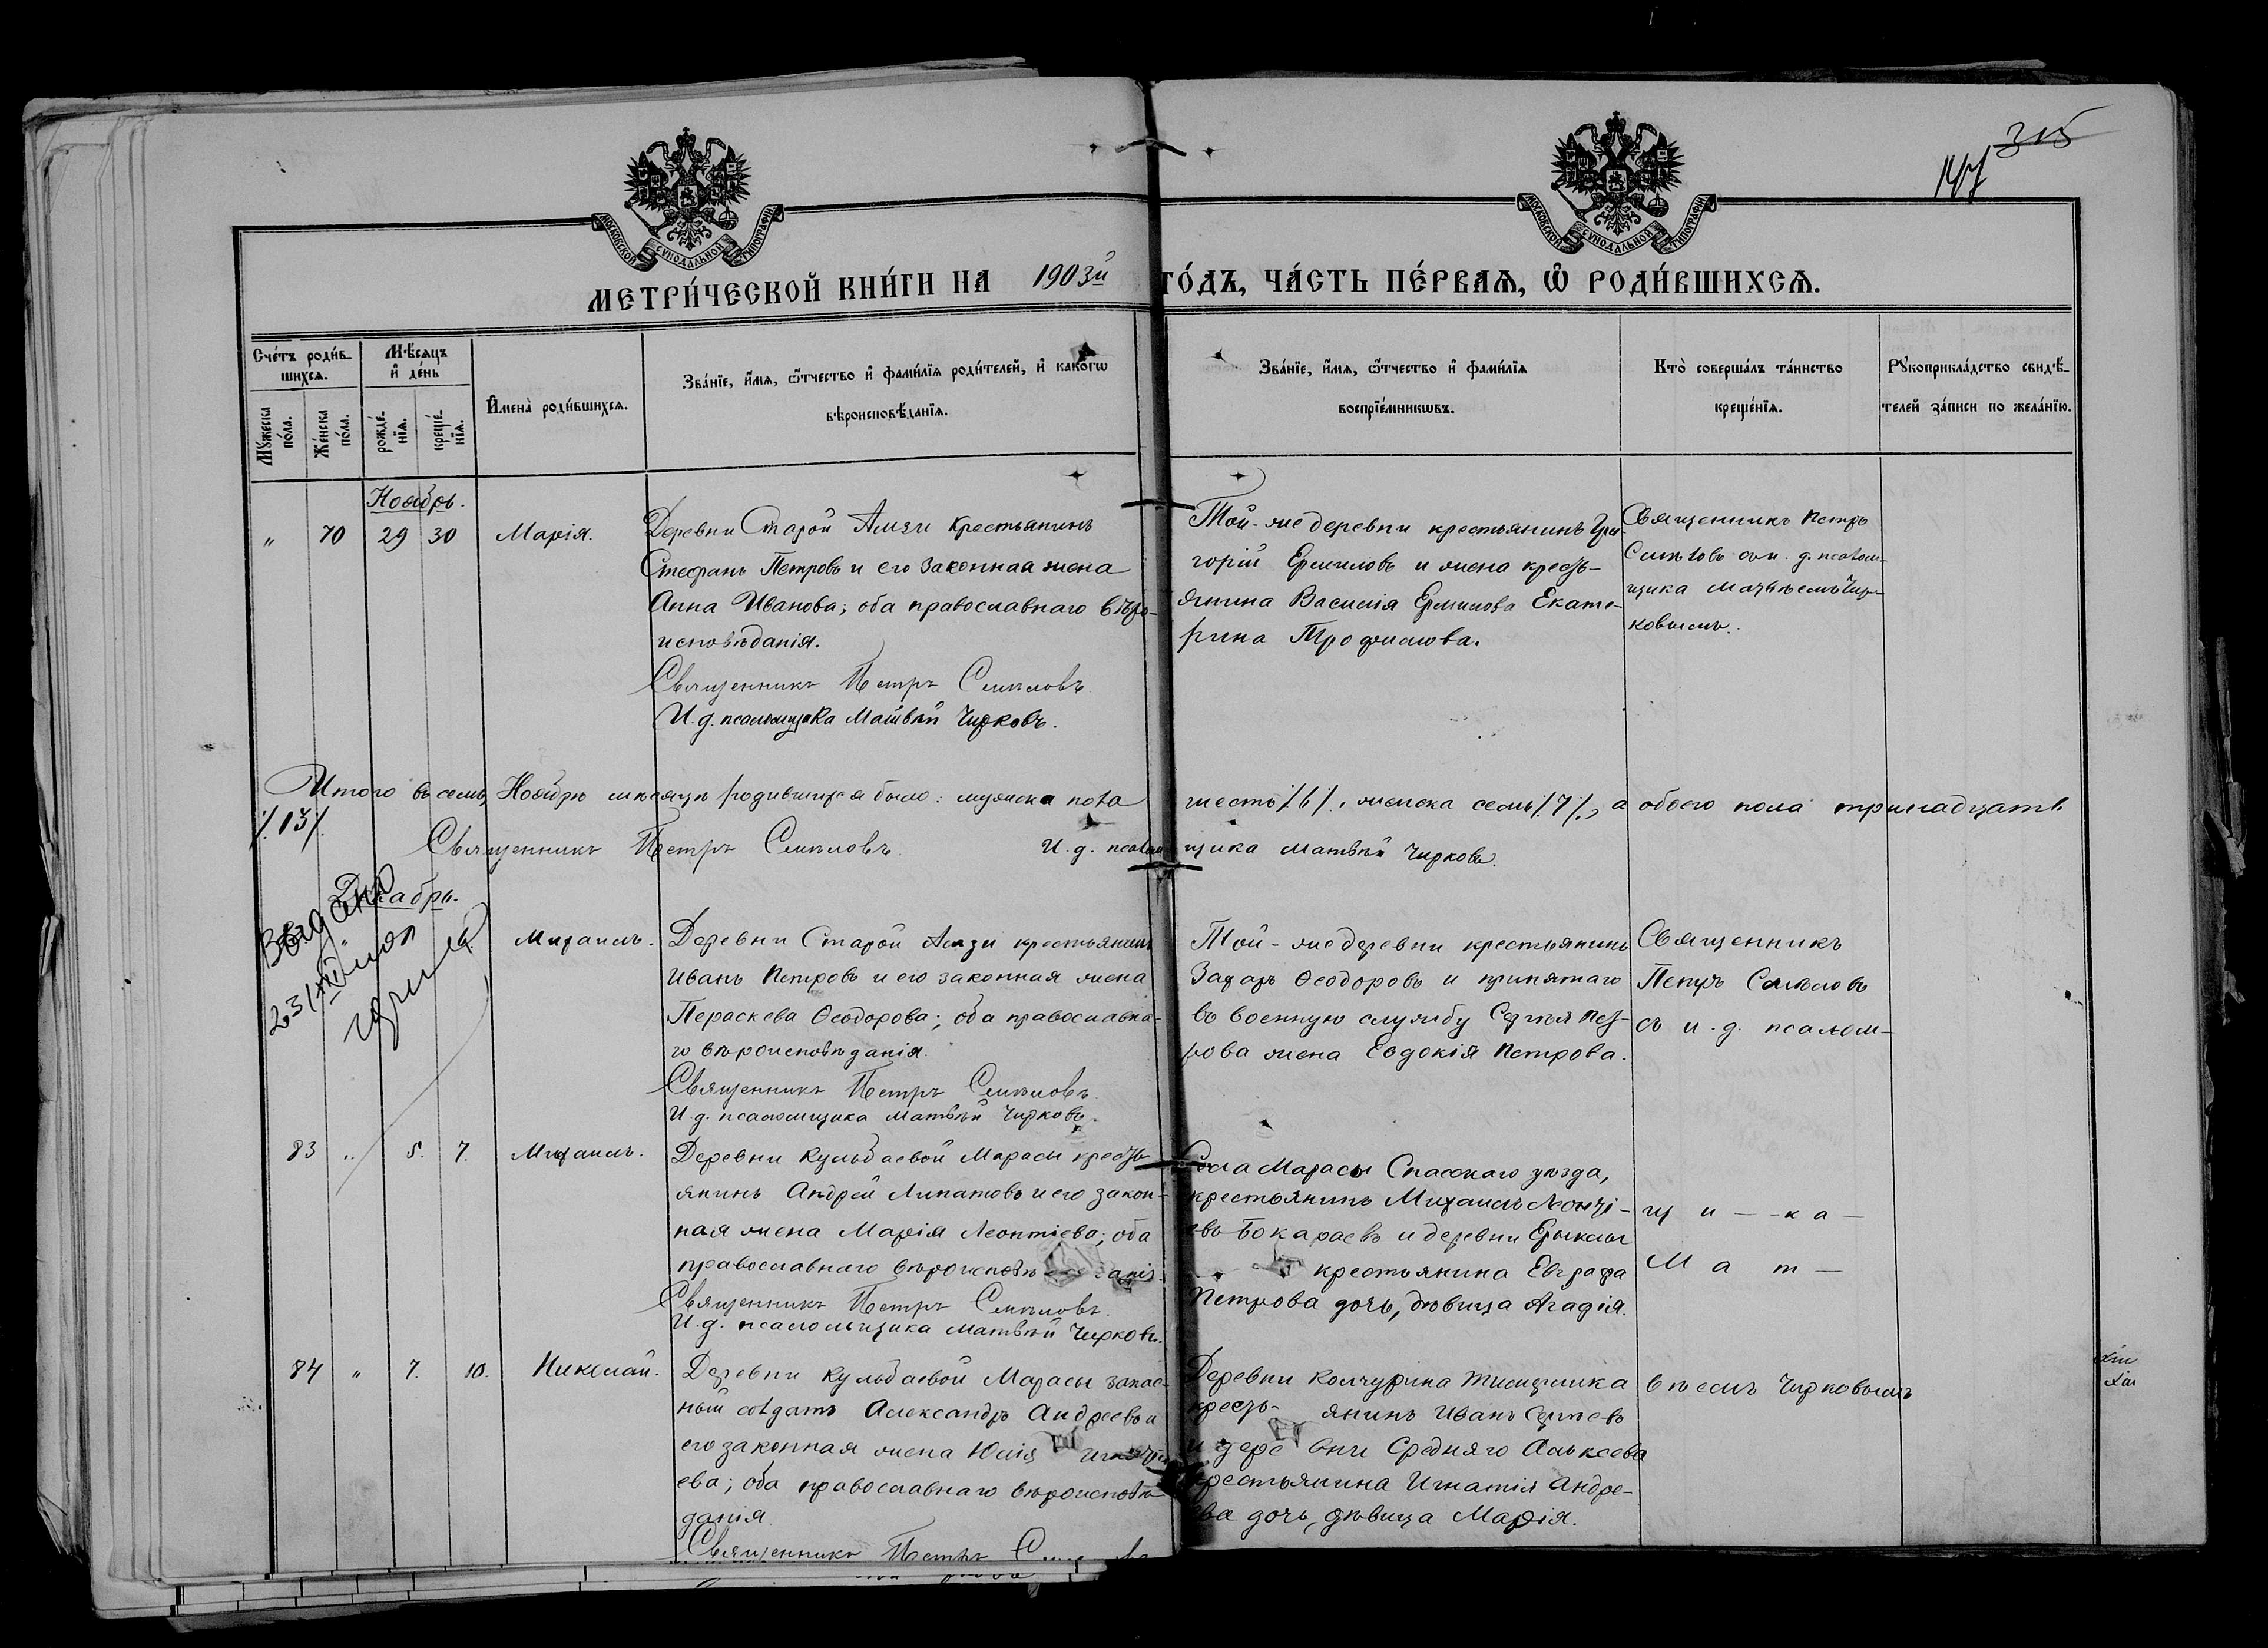 315
147
МОСКОВСКОЙ СѴНОДАЛЬНОЙ ТИПОГРАФІИ
МОСКОВСКОЙ СѴНОДАЛЬНОЙ ТИПОГРАФІИ
МЕТРИ́ЧЕСКОЙ КНИ́ГИ НА 1903й ГО́ДЪ, ЧА́СТЬ ПЕ́РВАѦ, Ѡ҆ РОДИ́ВШИХСѦ.
Сче́тъ роди́в-
шихсѧ.
Мѣ́сѧцъ
и҆ де́нь
Мꙋ́жеска
по́ла.
Же́нска
по́ла.
рожде́-
нїѧ.
креще́-
нїѧ.
И҆мена̀ роди́вшихсѧ.
Зва́нїе, и҆́мѧ, ѻ҆́тчество и҆ фами́лїѧ роди́телей, и҆ како́гѡ
вѣроисповѣ́данїѧ.
Зва́нїе, и҆́мѧ, ѻ҆́тчество и҆ фами́лїѧ
воспрїе́мникѡвъ.
Кто̀ соверша́лъ та́инство
креще́нїѧ.
Рꙋкоприкла́дство свидѣ́-
телей за́писи по жела́нїю.
Ноябрь.
" 70 29 30 Марія.
Деревни Старой Амзи крестьянинъ
Стефанъ Петровъ и его законная жена
Анна Иванова; оба православнаго вѣро-
исповѣданія.
Священникъ Петръ Смѣловъ
И. д. псаломщика Матвѣй Чирковъ.
Той-же деревни крестьянинъ Гри-
горій Ермиловъ и жена кресть-
янина Василія Ермилова Екате-
рина Трофимова.
Священникъ Петръ
Смѣловъ и. д. псалом-
щика Матвѣемъ Чир-
ковымъ.
Итого въ семъ Ноябрѣ мѣсяцѣ родившихся было: мужска пола шесть /6/, женска семь /7/, а обоего пола тринадцать
/13/.
Священникъ Петръ Смѣловъ. И. д. псаломщика Матвѣй Чирковъ.
Декабрь.
Выдано
Михаилъ.
Деревни Старой Амзи крестьянинъ
Иванъ Петровъ и его законная жена
Параскева Ѳеодорова; оба православна-
го вѣроисповѣданія.
Священникъ Петръ Смѣловъ.
И. д. псаломщика Матвѣй Чирковъ.
Той-же деревни крестьянинъ
Захаръ Ѳеодоровъ и принятаго
въ военную службу Сергѣя Пет-
рова жена Евдокія Петрова.
Священникъ
Петръ Смѣловъ
съ и. д. псалом-
83 " 5. 7. Михаилъ.
Деревни Кульбаевой Марасы кресть-
янинъ Андрей Липатовъ и его закон-
ная жена Марія Леонтіева; оба
православнаго вѣроисповѣданія.
Священникъ Петръ Смѣловъ.
И. д. псаломщика Матвѣй Чирковъ.
Села Марасы Спасскаго уѣзда,
крестьянинъ Михаилъ Леонті-
евъ Бокараевъ и деревни Ерыклы
крестьянина Евграфа
Петрова дочь, дѣвица Агафія.
щи--ка-
Мат-
84 " 7. 10. Николай.
Деревни Кульбаевой Марасы запас-
ный солдатъ Александръ Андреевъ и
его законная жена Юлія
ева; оба православнаго вѣроисповѣ-
данія.
Священникъ Петръ
Деревни Колчурина
кресть-янинъ Иванъ Сергѣевъ
и деревни Средняго Алькеева
крестьянина Игнатія Андре-
ева дочь, дѣвица Марія.
вѣемъ Чирковымъ